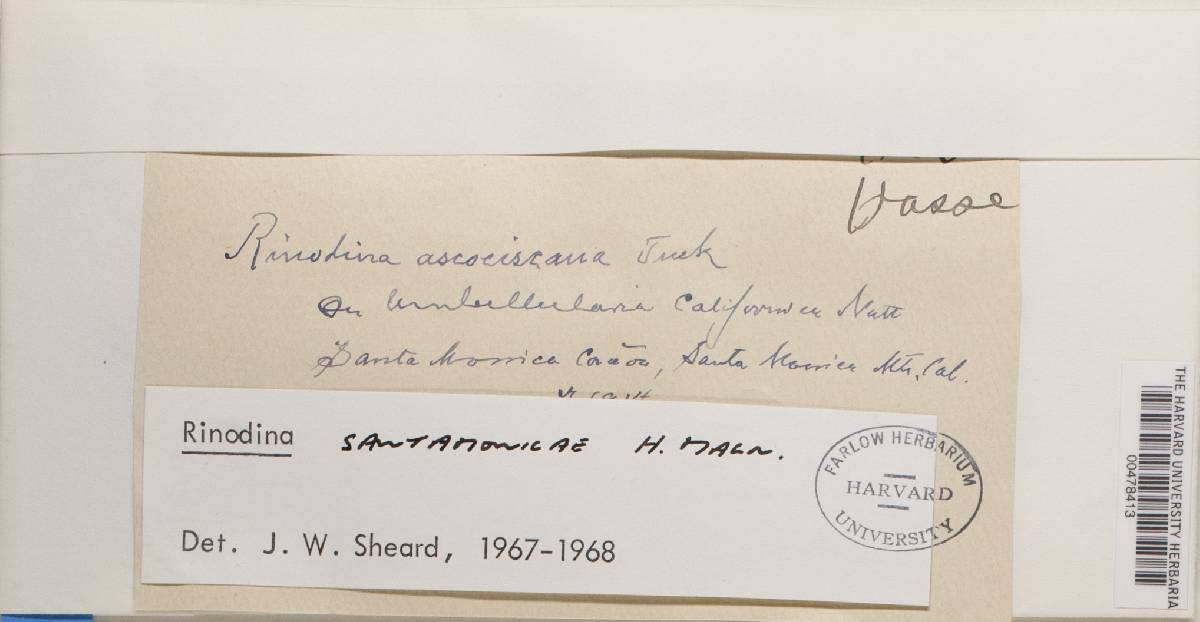 Hasse
Rinodina ascociscana Tuck
On Umbellularia Californica Nutt
Santa Monica Cañon, Santa Monica Mts, Cal.
Rinodina SANTAMONICAE H. MAGN.
Det. J. W. Sheard, 1967-1968
FARLOW HERBARIUM
HARVARD
UNIVERSITY
THE HARVARD UNIVERSITY HERBARIA
00478413